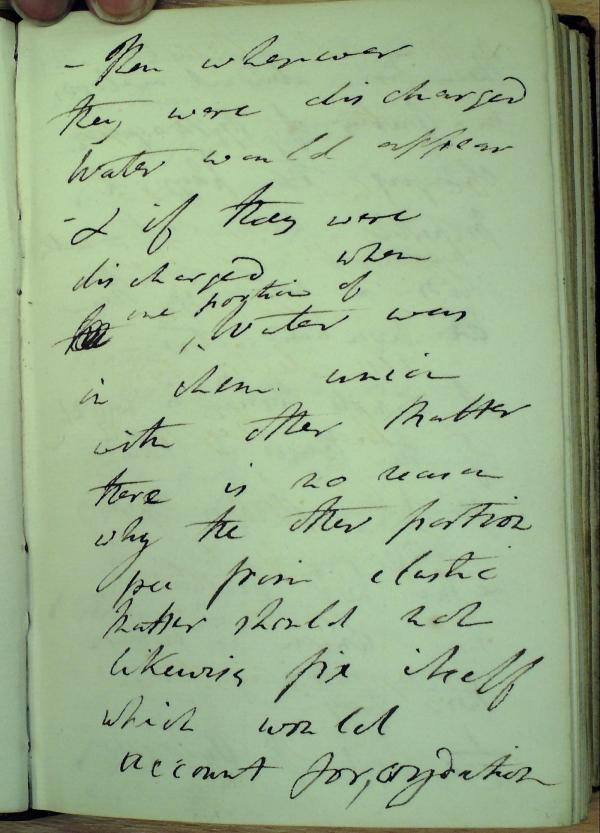 - Then whenever
they were discharged
water would appear
- & if they were
discharged when
one portion of
water was
in chem. union
with other matter
there is no reason
why the other portion
free from elastic
matter should not
likewise fix itself
which would
account for, oxydation